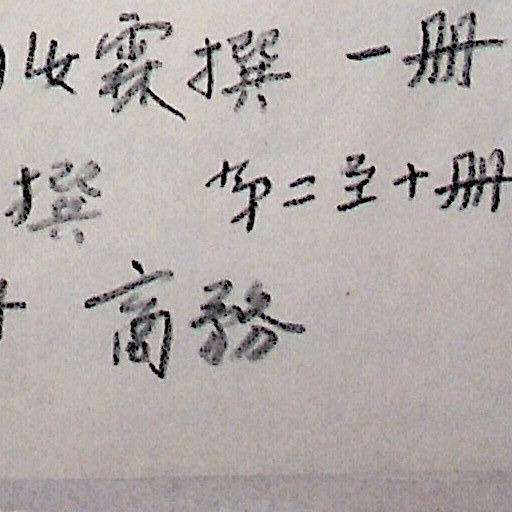 霖撰 一册
撰 第二至十册
商務